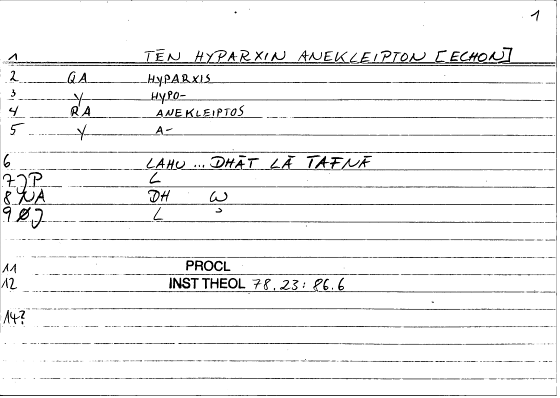 1
1 TĒN HYPARXIN ANEKLEIPTON [ECHON]
2 QA HYPARXIS
3 Y HYPO-
4 RA ANEKLEIPTOS
5 Y A-
6 LAHU ... DHĀT LĀ TAFNĀ
7 JP L
8 NA DH W
9 ØJ L
11 PROCL
12 INST THEOL 78.23: 86.6
14?